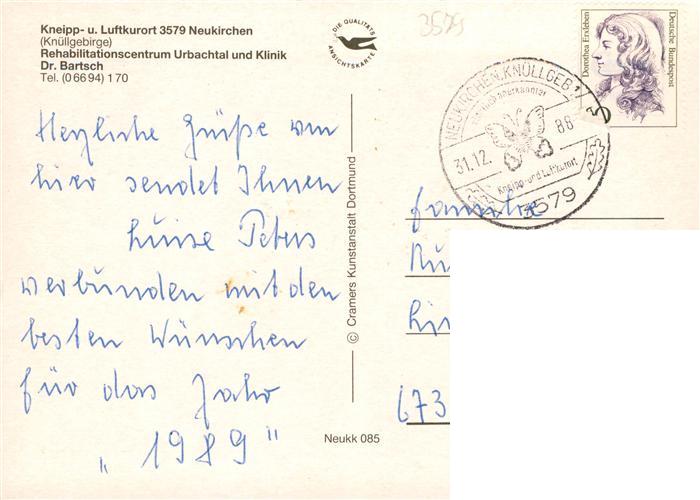 Kneipp- u. Luftkurort 3579 Neukirchen
(Knüllgebirge)
Rehabilitationscentrum Urbachtal und Klinik
Dr. Bartsch
Tel. (0 66 94) 1 70
Herzliche Grüße von
hier sendet Ihnen
Luise Peters
verbunden mit den
besten Wünschen
für das Jahr
„1989"
DIE QUALITÄTS
ANSICHTSKARTE
© Cramers Kunstanstalt Dortmund
Neukk 085
3579
Dorothea Erxleben
Deutsche Bundespost
NEUKIRCHEN, KNÜLLGEB 1
31.12. 88
Kneipp- und Luftkurort
3579
Familie
673